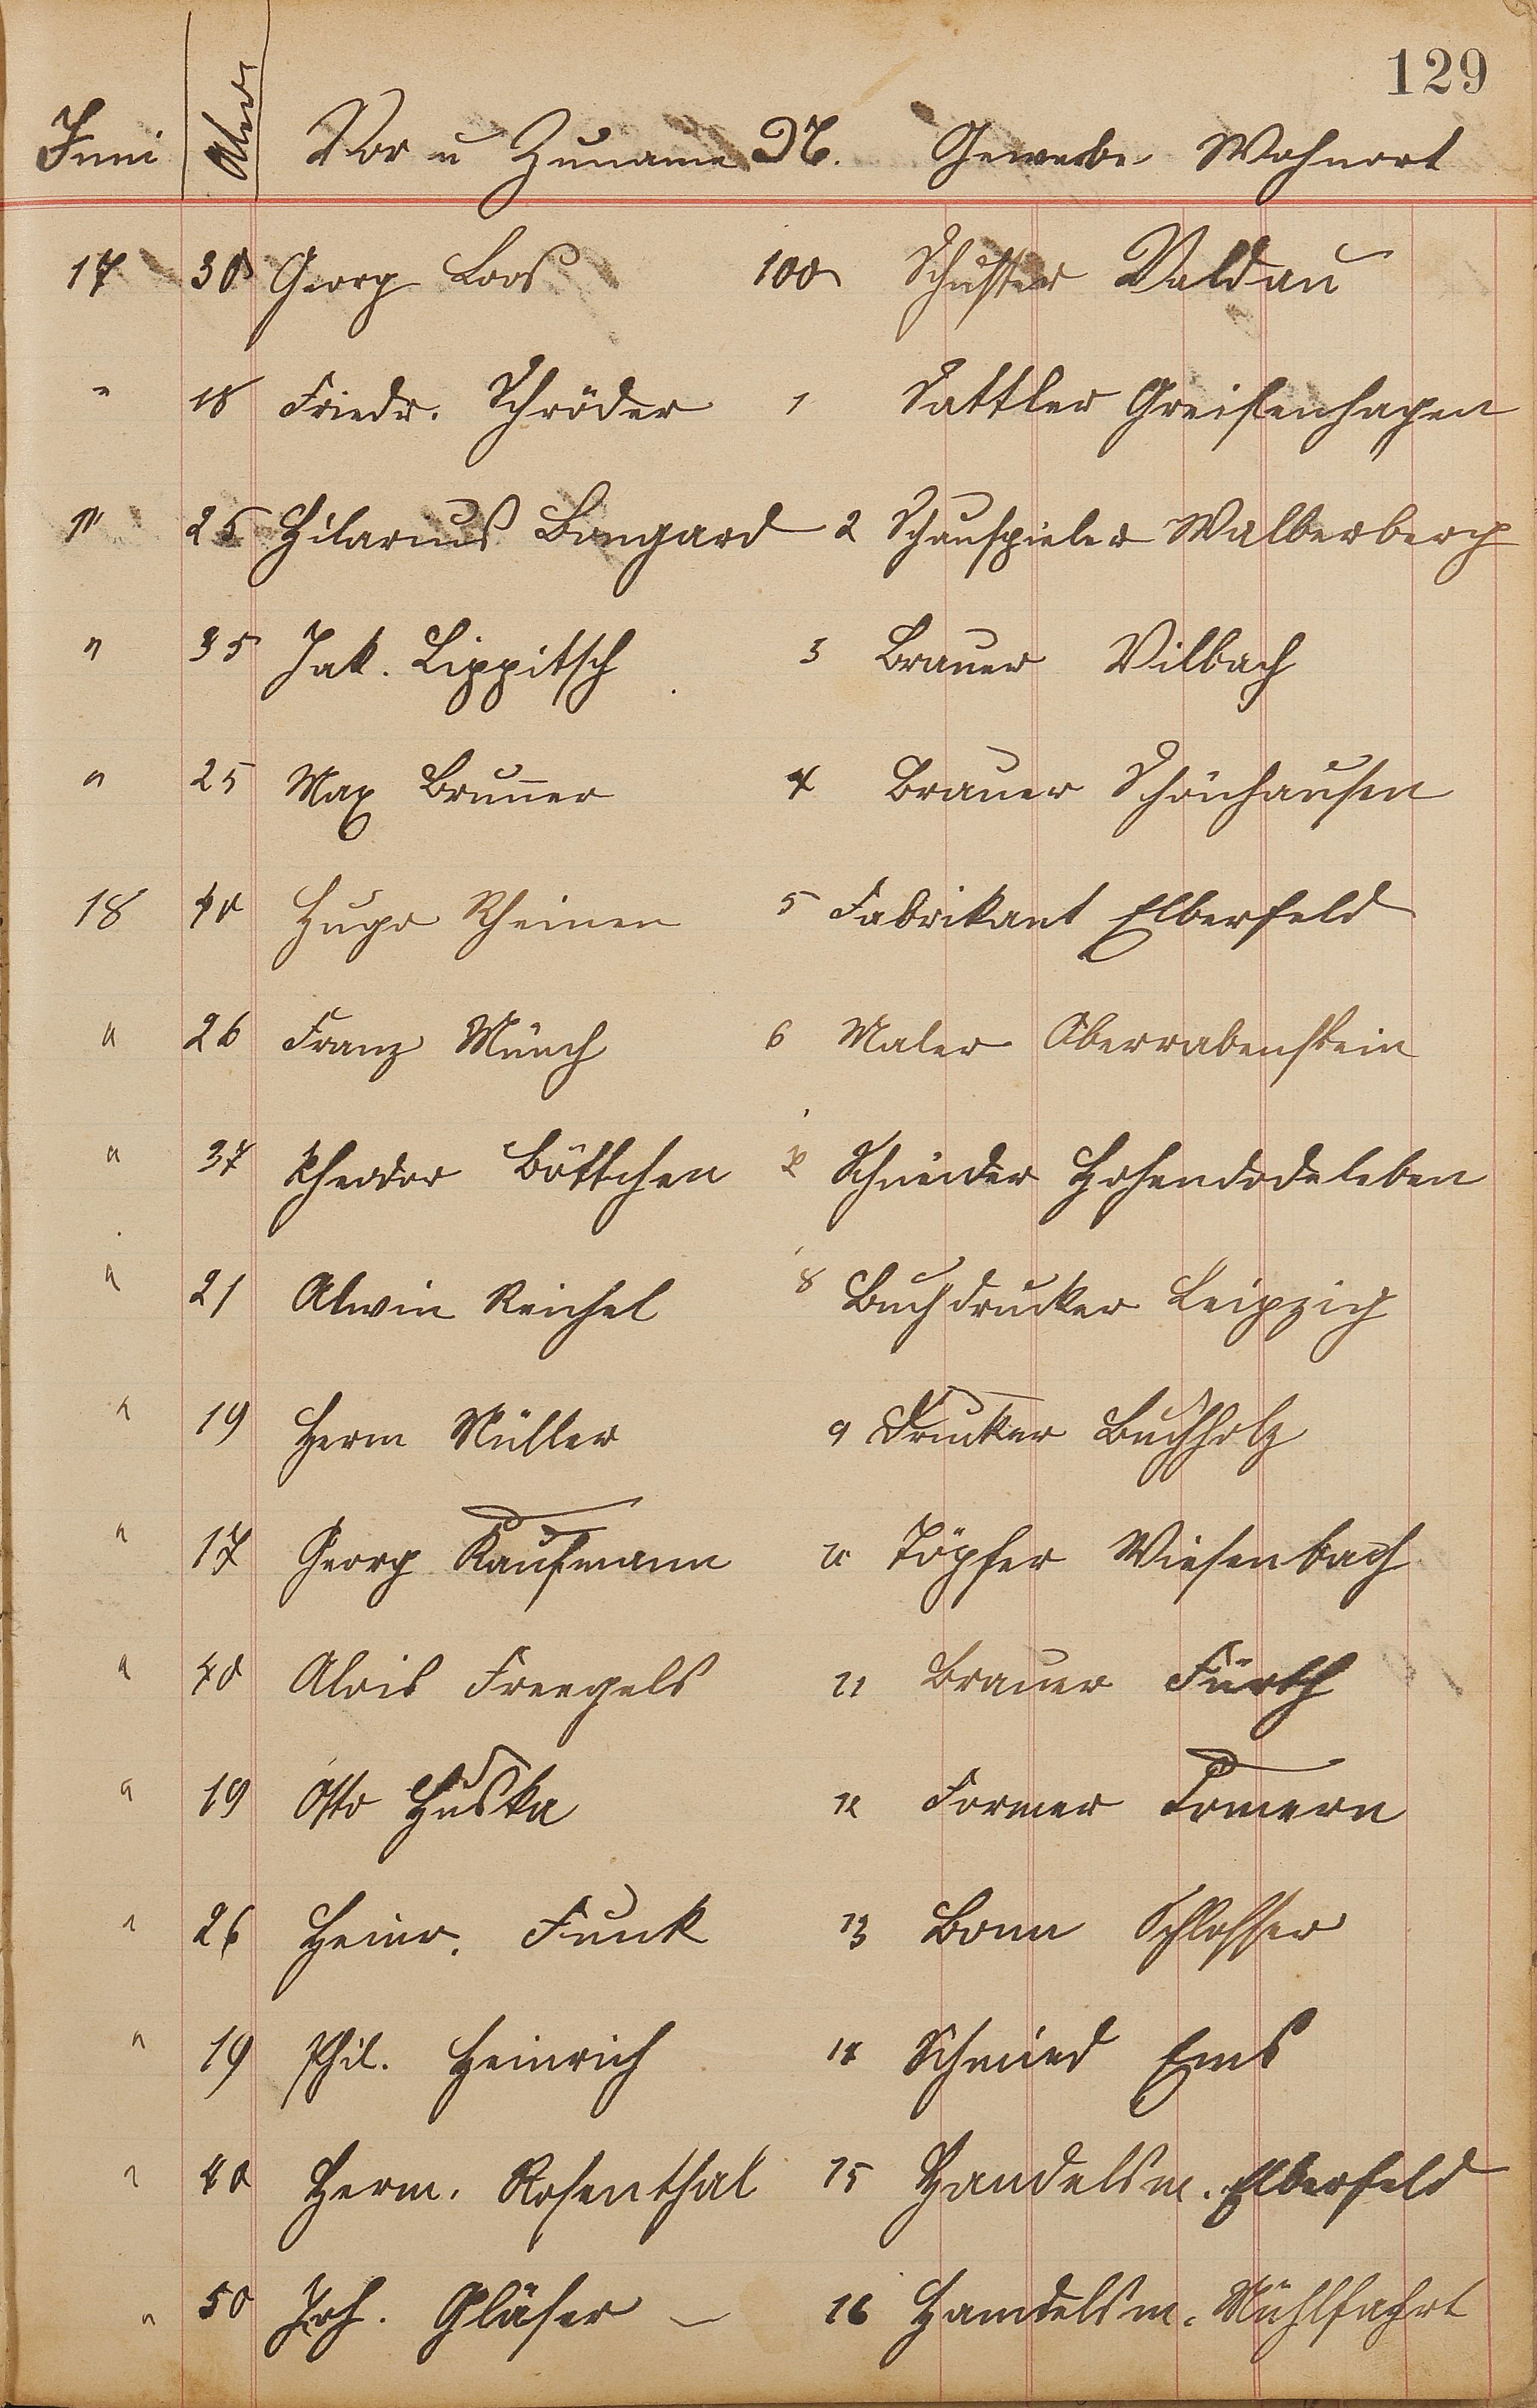 129
Juni Alter Vor u Zuname N. Gewerbe Wohnort
17 30 Georg Loos 100 Schuster Waldau
" 18 Friedr. Schröder 1 Sattler Greifenhagen
" 25 Hilarius Bongard 2 Schauspieler Walberberg
" 35 Jak. Lippitsch 3 Brauer Vilbach
" 25 Max Brunner 4 Brauer Schönhausen
18 40 Hugo Rheinen 5 Fabrikant Elberfeld
" 26 Franz Münch 6 Maler Oberrabenstein
" 37 Theodor Böttcher Schneider Hohendodeleben
" 21 Alwin Reichel 8 Buchdrucker Leipzig
" 19 Herm Müller 9 Drucker Buchholz
" 17 Georg Kaufmann Töpfer Wiesenbach
" 40 Alois Freegels 11 Brauer Fürth
" 19 Otto Huska 12 Former Pomern
" 26 Heinr. Funk 13 Bonn Schlosser
" 19 Phil. Heinrich 14 Schmied Ems
" 40 Herm. Rosenthal 15 Handelsm. Elberfeld
" 50 Joh. Gläser — 16 Handelsm. Mühlfahrt